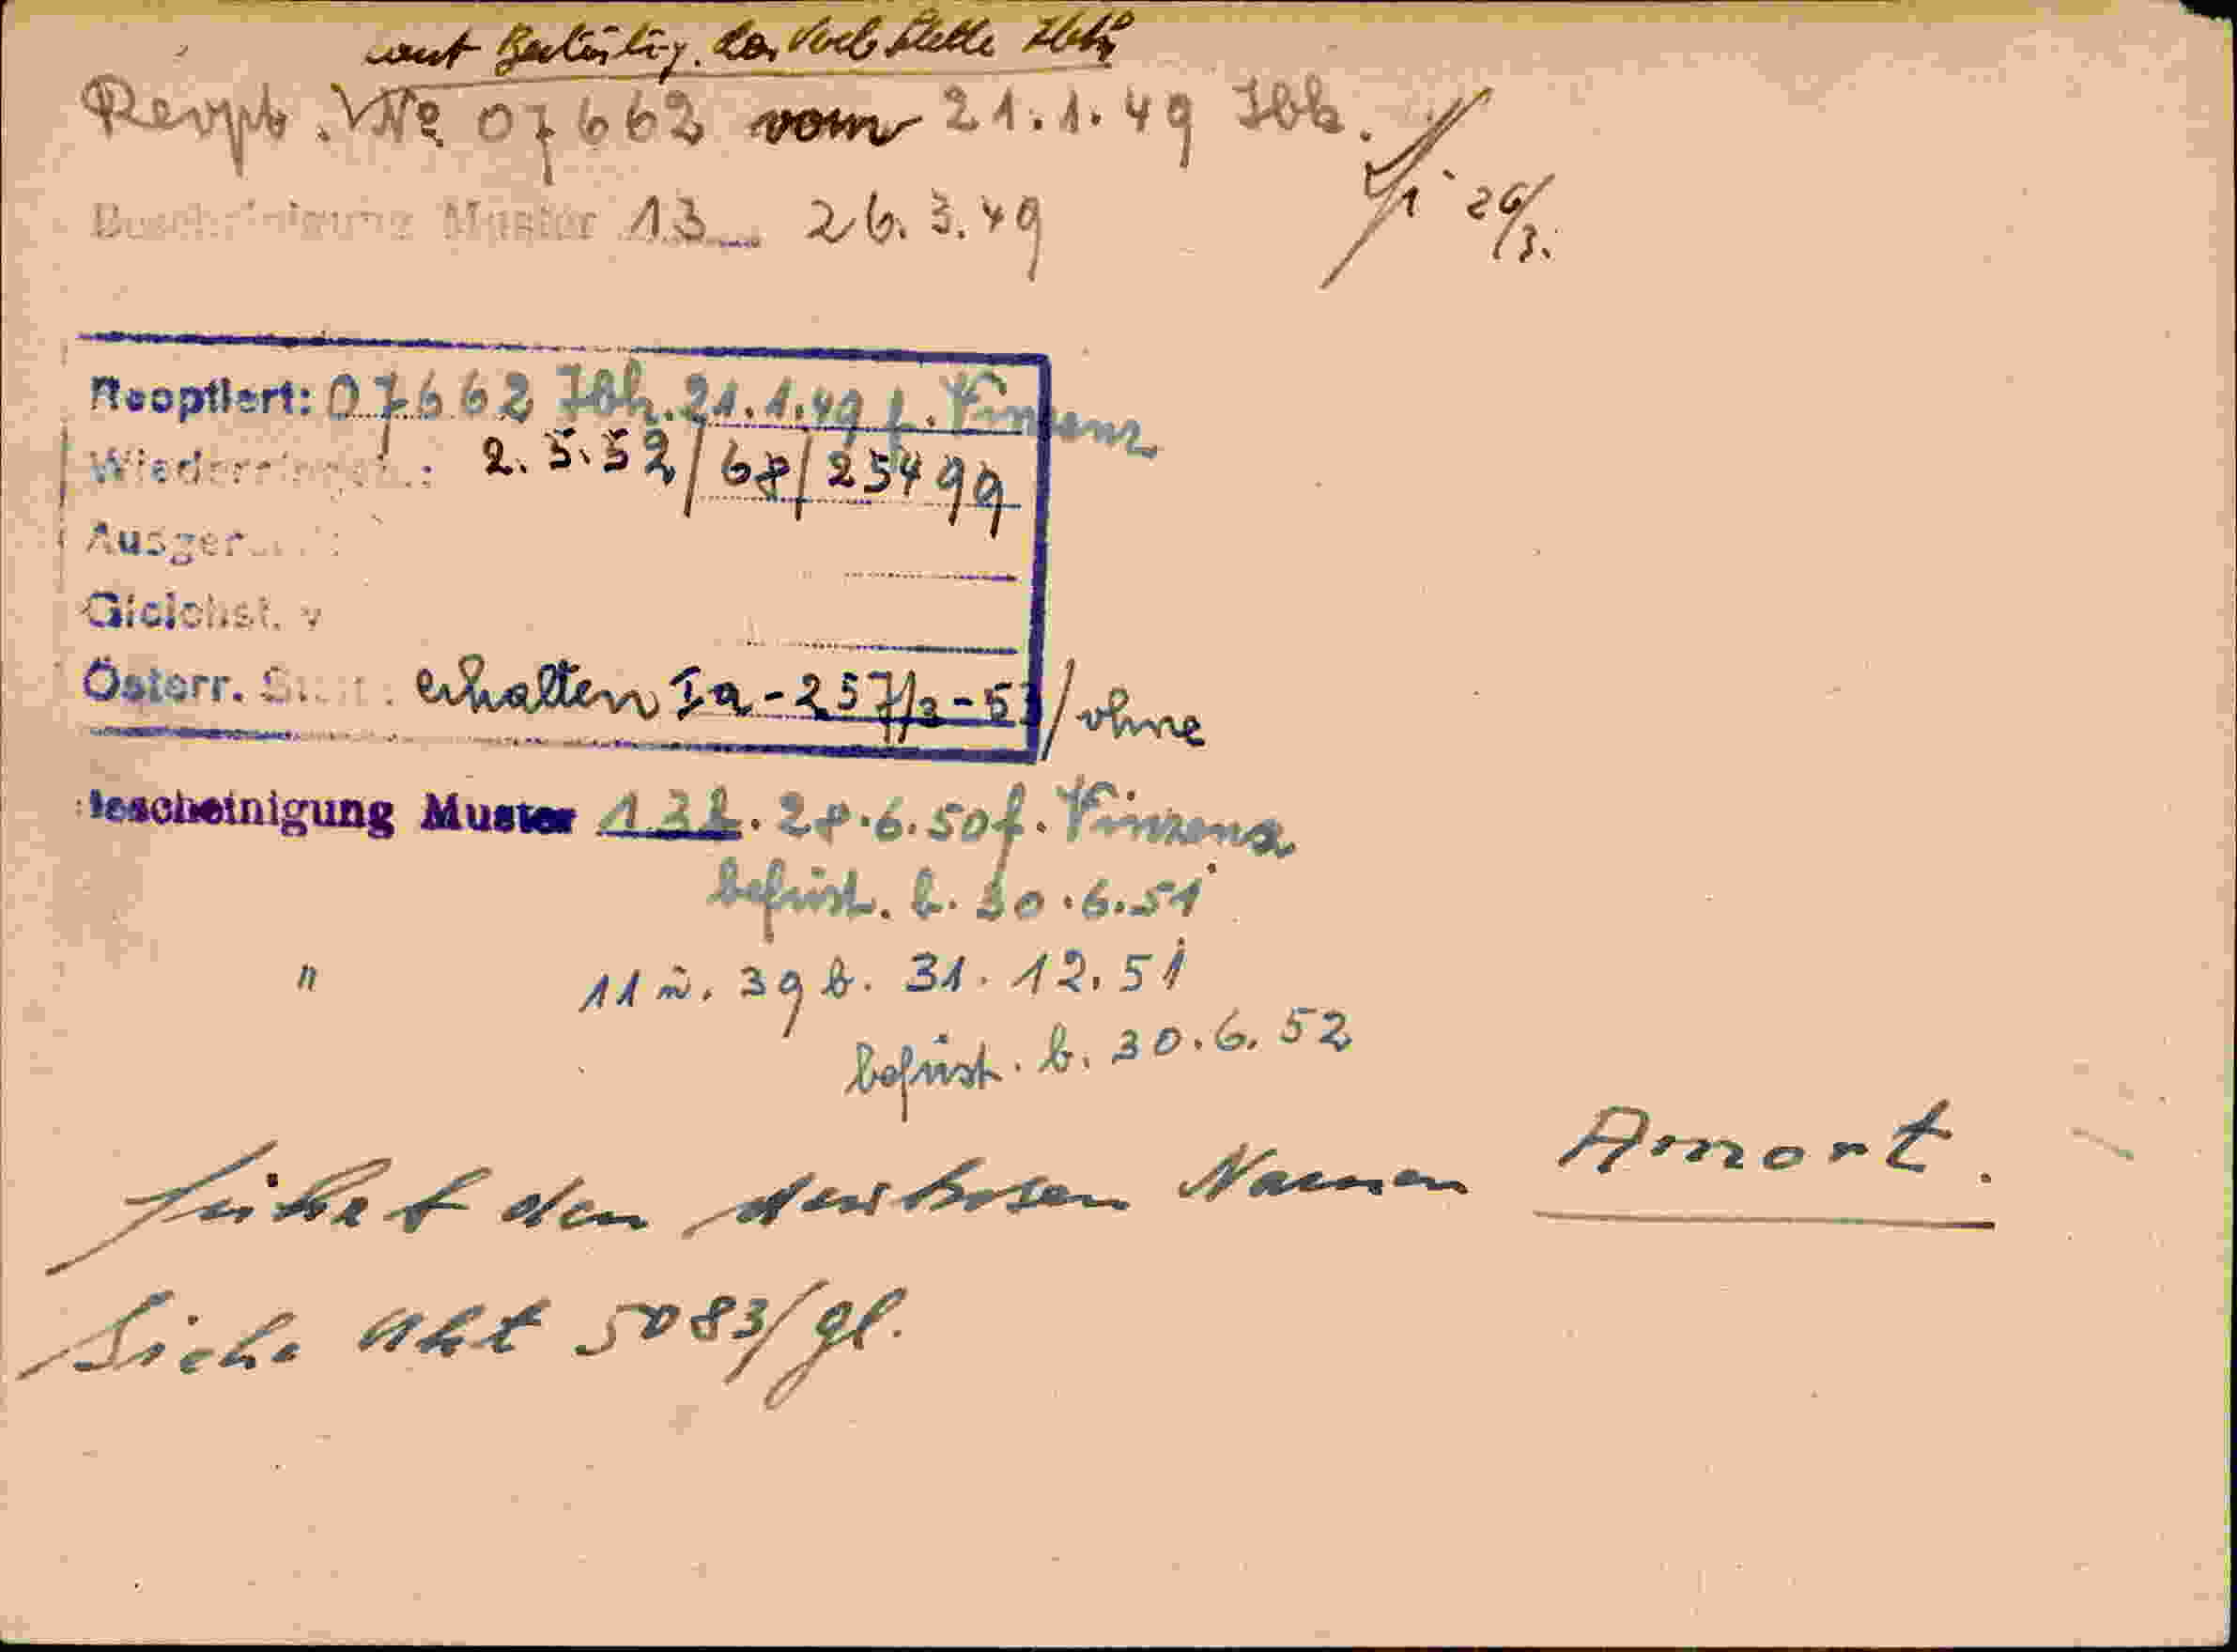 laut Bestätig. der Verb. Stelle Ibk
Reopt. No 07662 vom 21.1.49 Ibk.
26/3.
Bescheinigung Muster 13 26.3.49
Reoptiert: 07662 Ibk. 21.1.49 f. Vinzenz
Wiedereingeb.: 2.5.52/68/25499
Ausger
Gleichst. v
Österr. St erhalten Ia-257/2-53/ohne
Bescheinigung Muster 13b. 28.6.50 f. Vinzenz
befrist. b. 30.6.51
" 11 u. 39 b. 31.12.51
befrist. b. 30.6.52
führt den deutschen Namen Amort.
Siehe Akt 5083/gl.